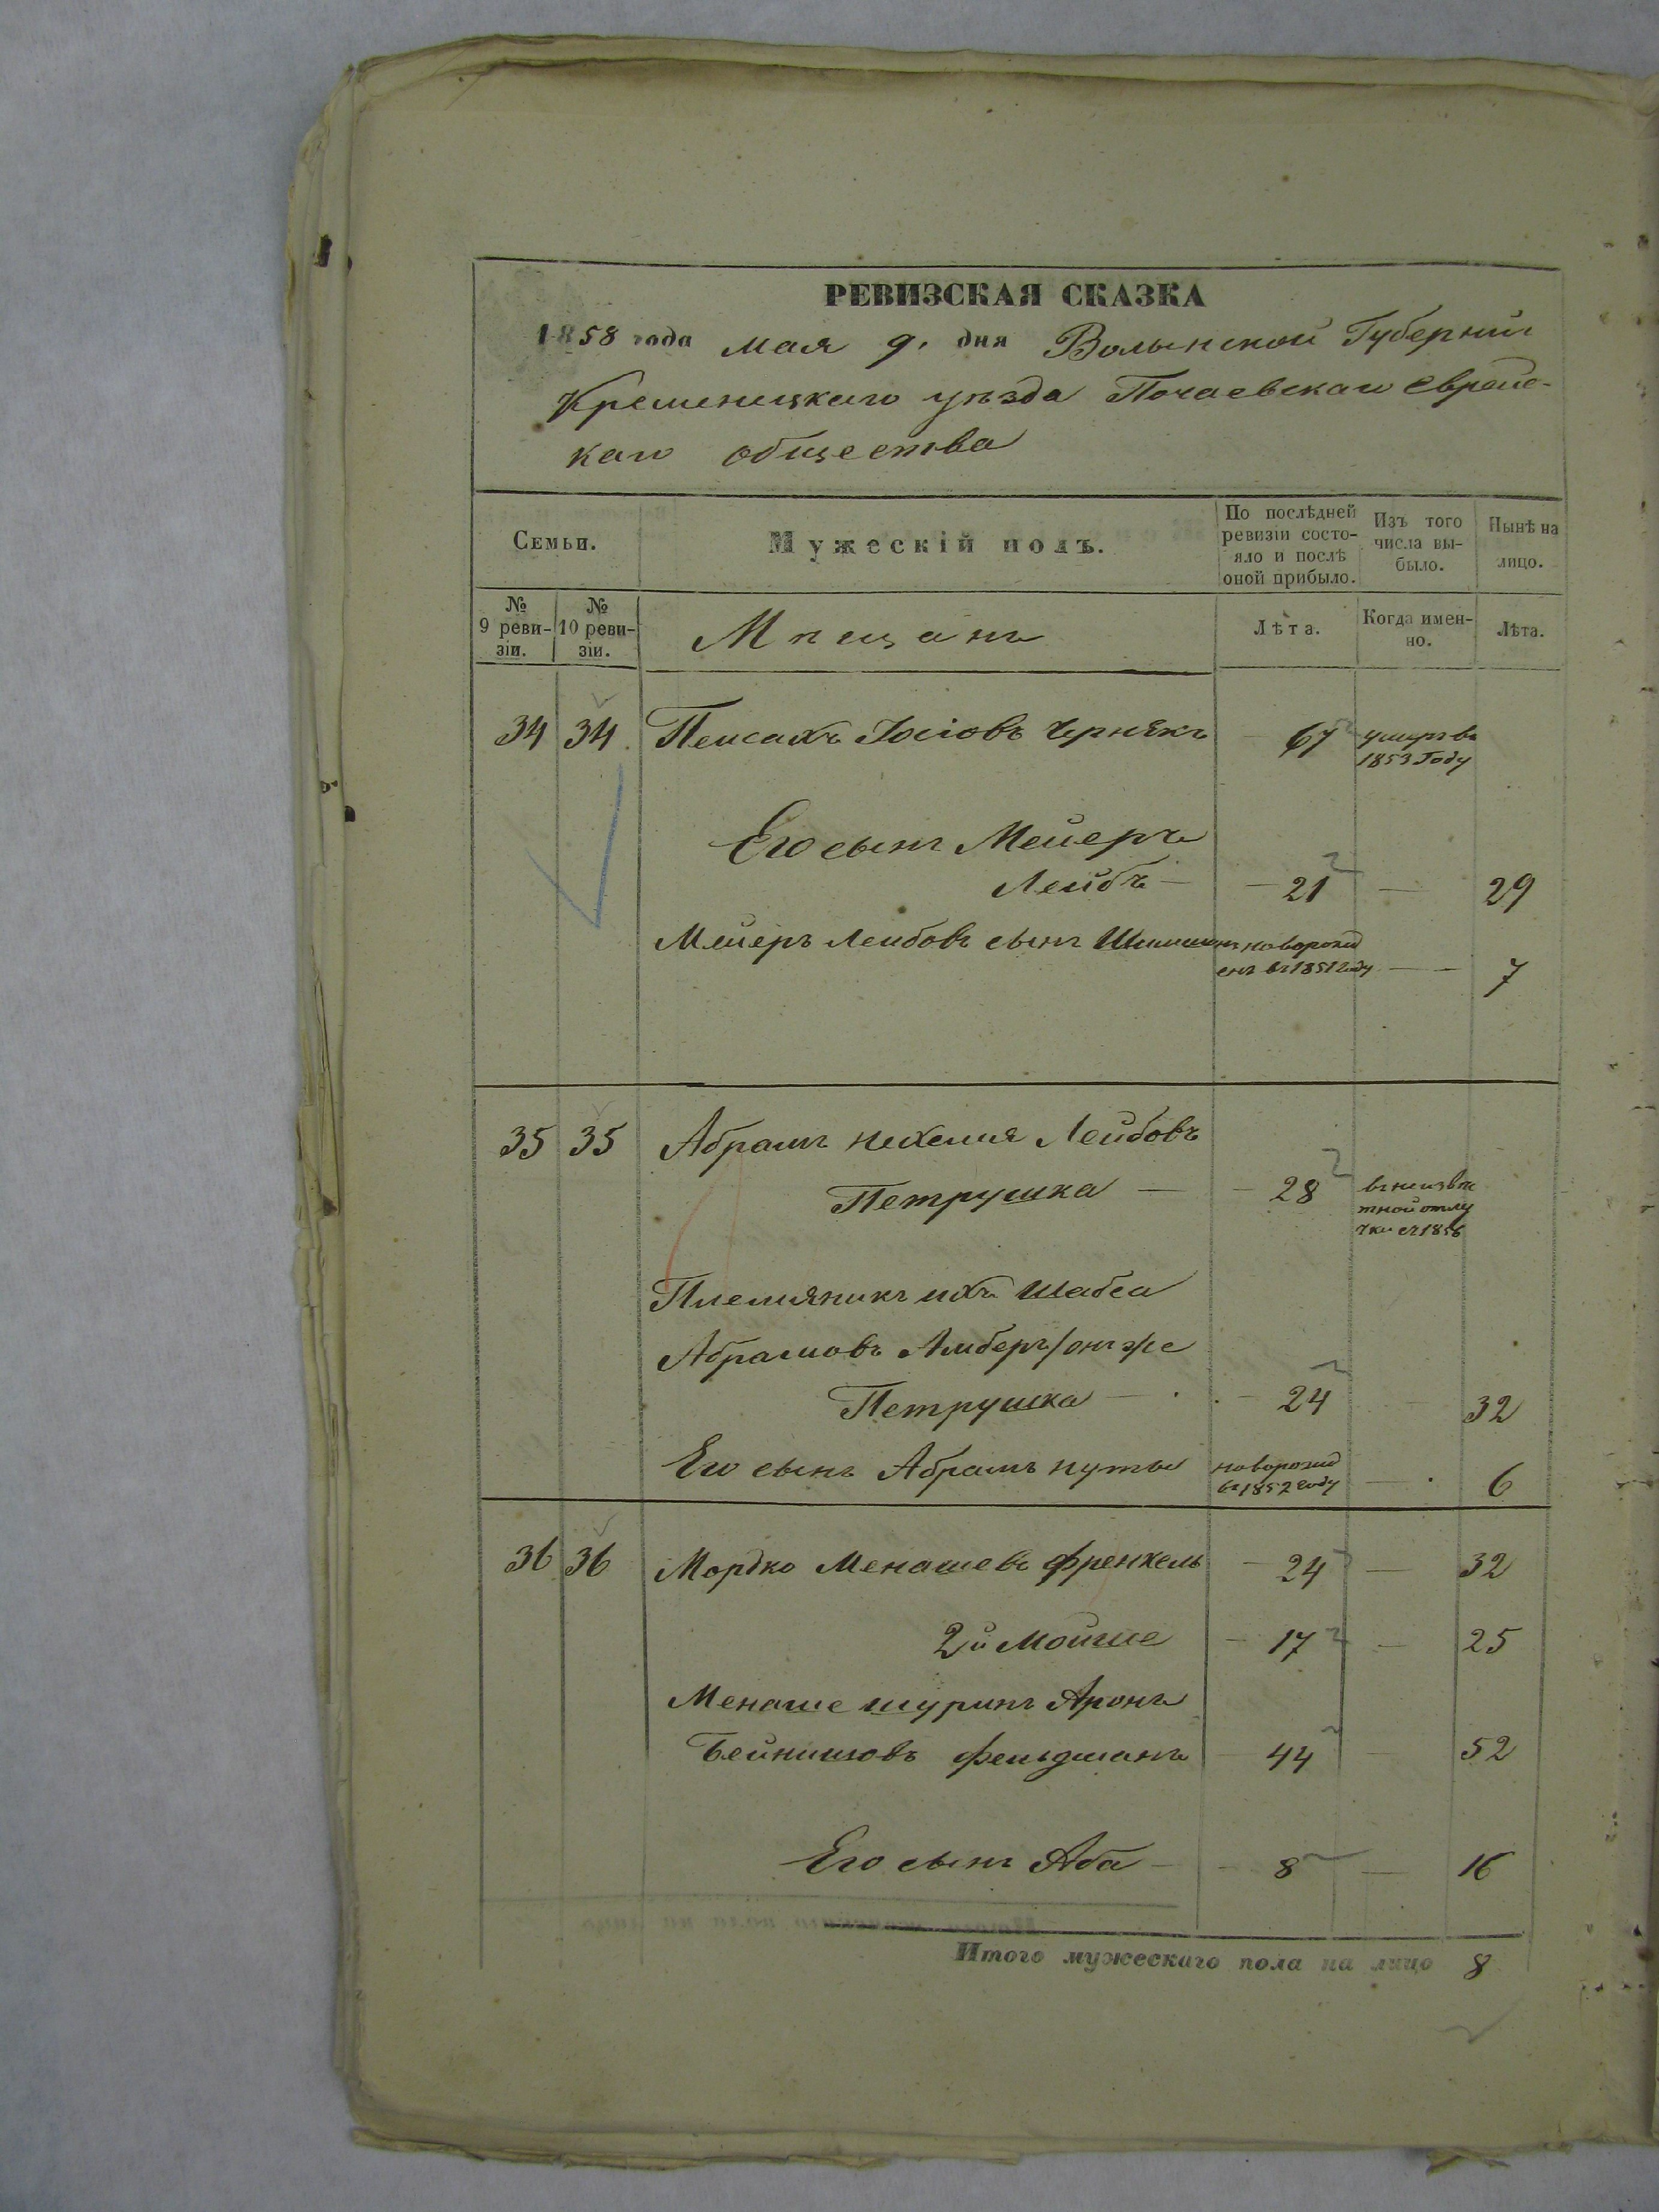 РЕВИЗСКАЯ СКАЗКА
1858 года мая 9. дня Волынской Губернии
Кременецкаго уѣзда Почаевскаго Еврейс-
каго общества
Семьи.
Мужескій полъ.
По послѣдней ревизіи состо-яло и послѣ оной прибыло.
Изъ того числа вы-было.
Нынѣ на лицо.
№ 9 реви-зіи.
№ 10 реви-зіи.
Мѣщанъ
Лѣта.
Когда имен-но.
Лѣта.
34 34 Пейсахъ Іосіовъ Чернякъ 67 умеръ въ
1853 Году
Его сынъ Мейеръ
Лейбъ — 21 — 29
Мейеръ Лейбовъ сынъ новорожд
енъ въ 1851 году — 7
35 35 Абрамъ Нехемия Лейбовъ
Петрушка — 28 въ неизвѣ
тной отлу
чки съ 1856
Племяникъ ихъ Шабса
Абрамовъ /онъ же
Петрушка — 24 32
Его сынъ Абрамъ новорожд
въ 1852 году — 6
36 36 Мордко Менашевъ Френкель 24 — 32
2й Мойше 17 — 25
Менаше шуринъ Аронъ
Бейнишовъ Фельдманъ 44 — 52
Его сынъ Аба 8 — 16
Итого мужескаго пола на лицо 8